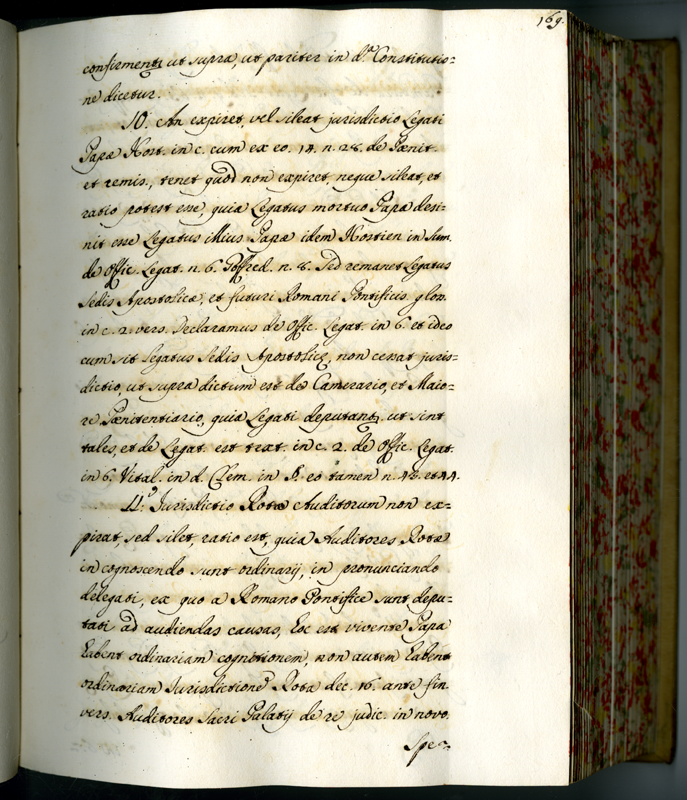 169.
confirmentq ut supra, ut pariter in d.ª Constitutio=
ne dicetur.
10. An expiret, vel sileat jurisdictio Legati
Papæ Host. in c. cum ex eo. 14. n. 28. de Pœnit.
et remis., tenet quod non expiret, neque sileat, et
ratio potest esse, quia Legatus mortuo Papa desi=
nit esse Legatus illius Papæ idem Hostien in Sum.
de Offic. Legat. n. 6. Goffred. n. 8. Sed remanet Legatus
Sedis Apostolicæ, et futuri Romani Pontificis. glos.
in c. 2. vers. Declaramus de Offic. Legat. in 6. et ideo
cum sit Legatus Sedis Apostolicę, non cessat juris=
dictio, ut supra dictum est de Camerario, et Maio=
re Pœnitentiario, quia Legati deputantq. ut sint
tales, et de Legat. est text. in c. 2. de Offic. Legat.
in 6. Vital. in d. Clem. in §. eo tamen n. 42. et 44.
11.º Jurisdictio Rotæ Auditorum non ex=
pirat, sed silet, ratio est, quia Auditores Rotæ
in cognoscendo sunt ordinarij, in pronunciando
delegati, ex quo a Romano Pontifice sunt depu=
tati ad audiendas causas, hoc est vivente Papa
habent ordinariam cognitionem, non autem habent
ordinariam Jurisdictione Rota dec. 16. ante fin.
vers. Auditores Sacri Palatij de re judic. in novo.
Spe=